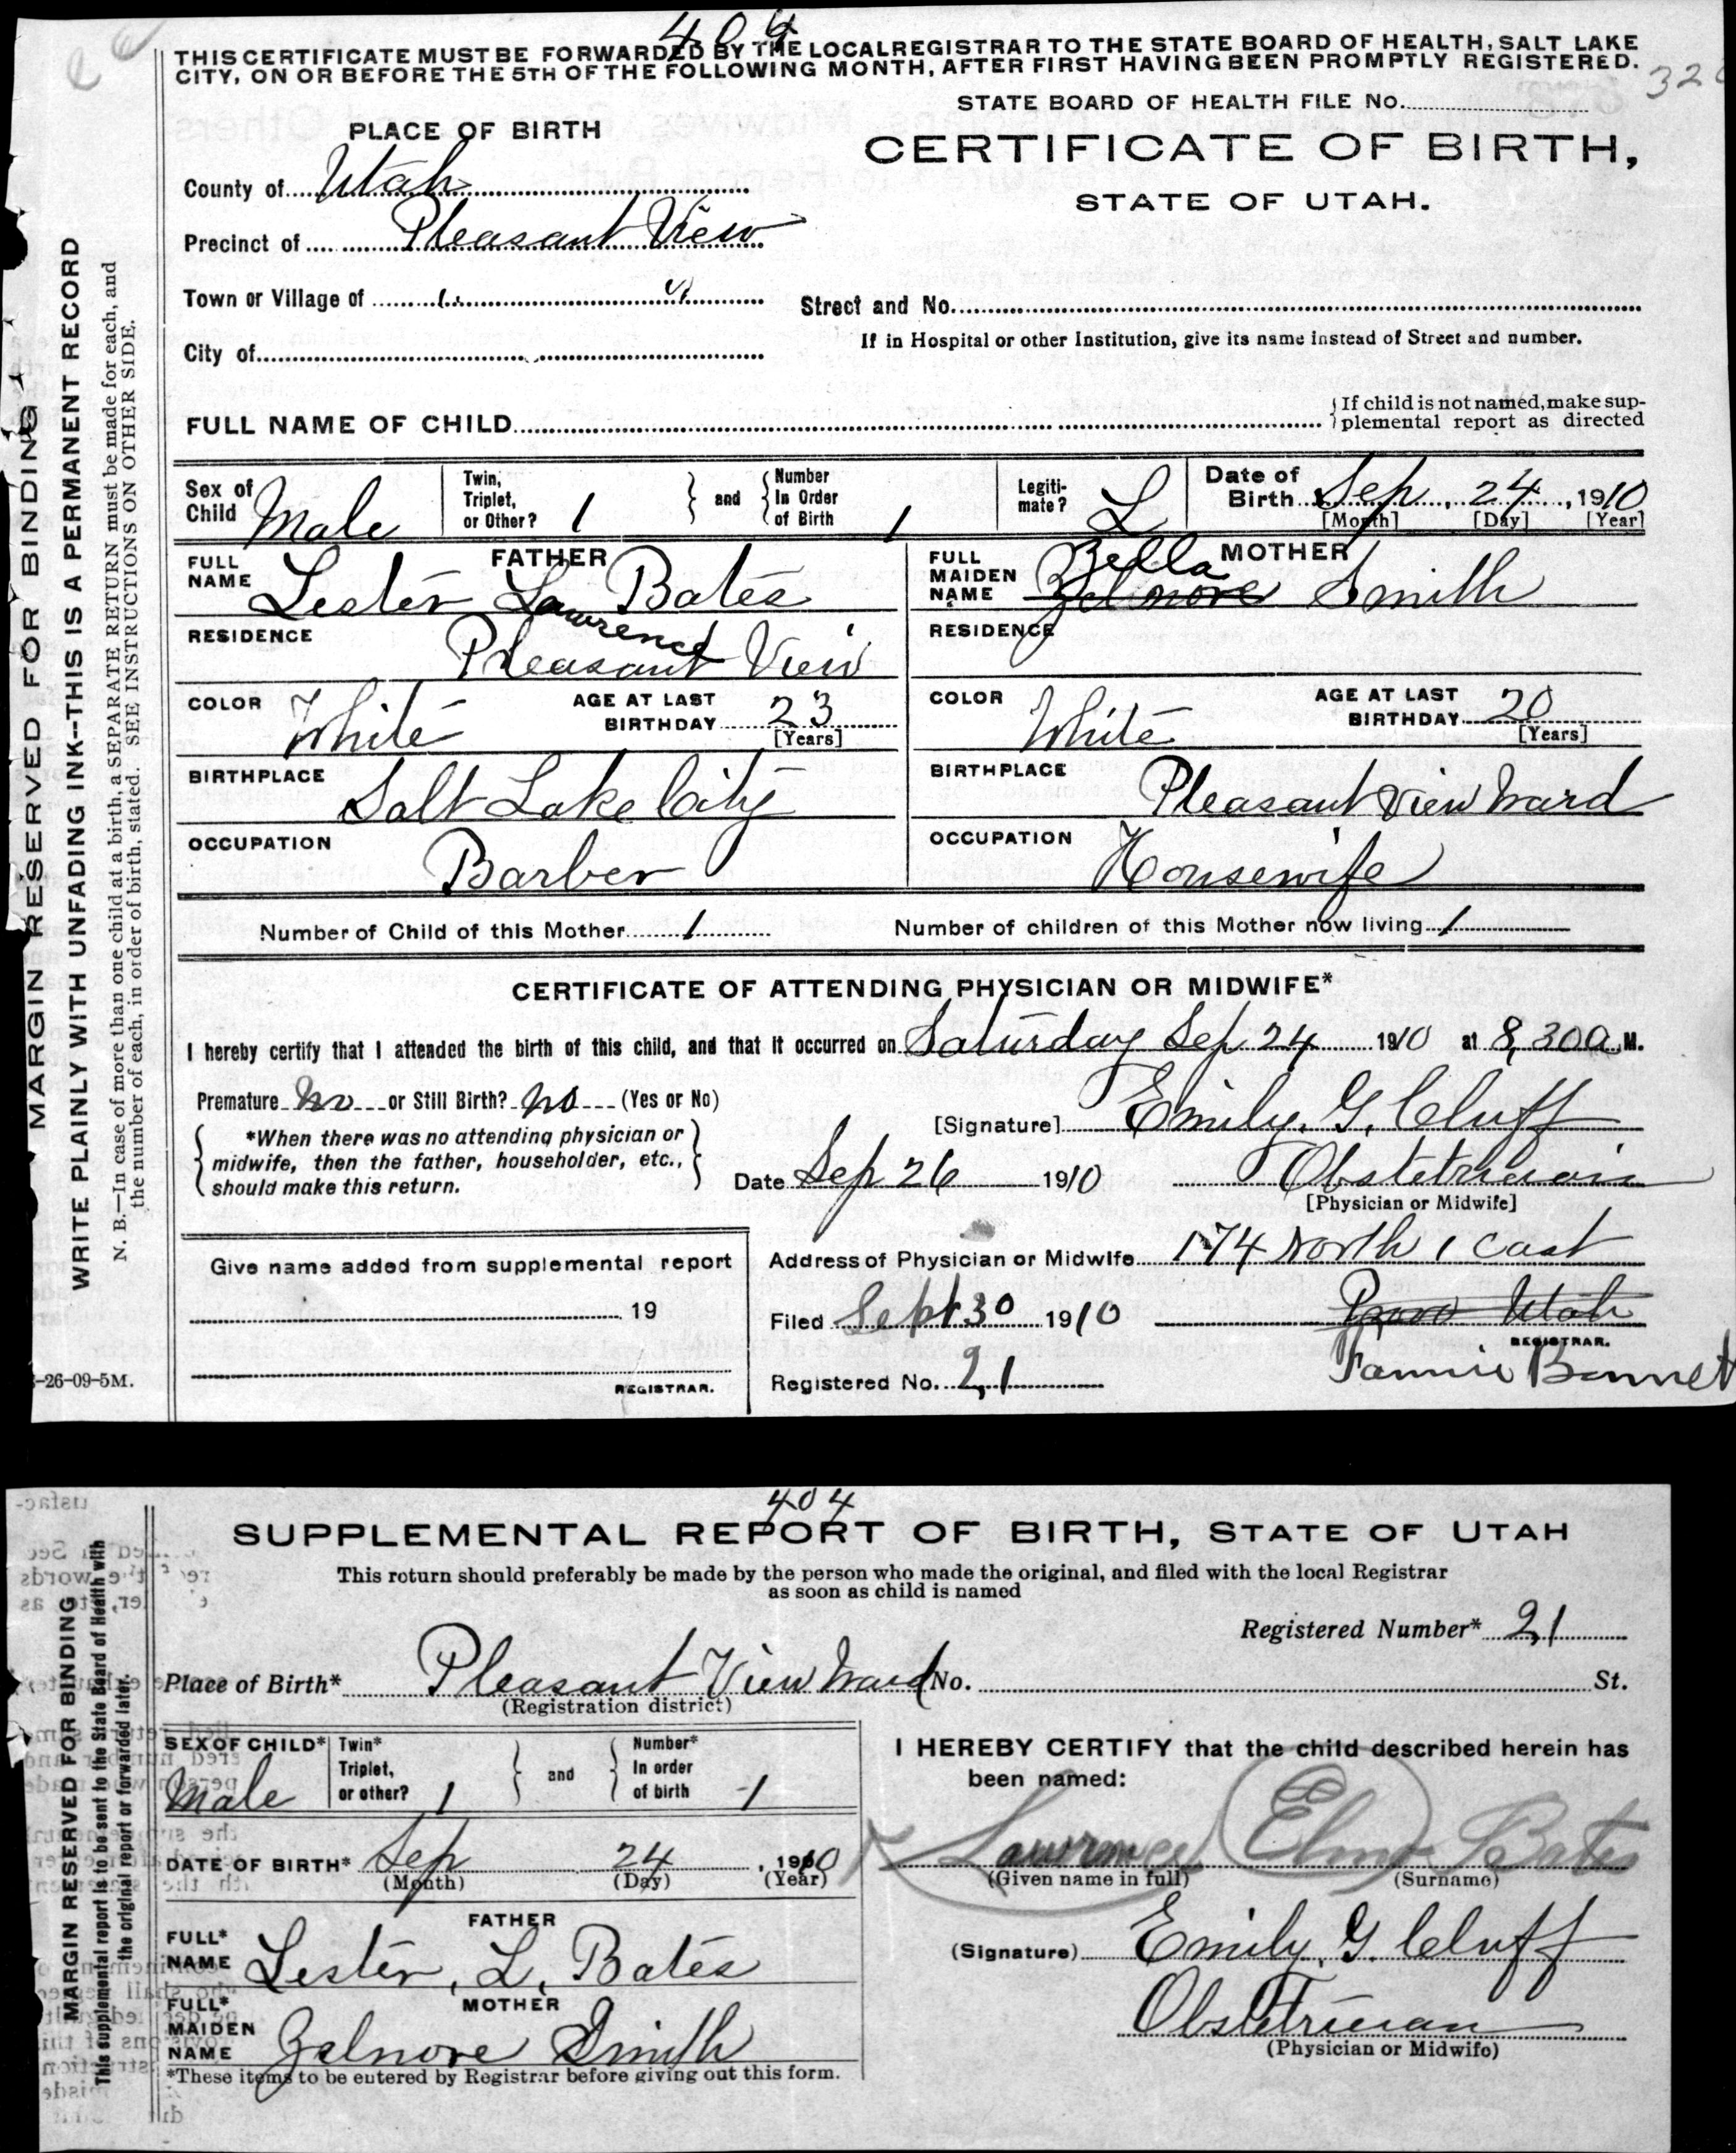 404
THIS CERTIFICATE MUST BE FORWARDED BY THE LOCAL REGISTRAR TO THE STATE BOARD OF HEALTH, SALT LAKE
CITY, ON OR BEFORE THE 5TH OF THE FOLLOWING MONTH, AFTER FIRST HAVING BEEN PROMPTLY REGISTERED.
STATE BOARD OF HEALTH FILE No.
PLACE OF BIRTH
CERTIFICATE OF BIRTH,
STATE OF UTAH.
County of Utah
Precinct of Pleasant View
Town or Village of " "
Street and No.
If in Hospital or other Institution, give its name instead of Street and number.
City of
FULL NAME OF CHILD
{ If child is not named, make sup-
plemental report as directed
Sex of Child Male
Twin, Triplet, or Other? 1
and
Number In Order of Birth 1
Legiti-mate? L
Date of Birth Sep, 24, 1910
[Month] [Day] [Year]
FATHER
FULL NAME Lester Lawrence Bates
RESIDENCE Pleasant View
COLOR White
AGE AT LAST BIRTHDAY 23
[Years]
BIRTHPLACE Salt Lake City
OCCUPATION Barber
MOTHER
FULL MAIDEN NAME Zella Zelnore Smith
RESIDENCE
COLOR White
AGE AT LAST BIRTHDAY 20
[Years]
BIRTHPLACE Pleasant View Ward
OCCUPATION Housewife
Number of Child of this Mother 1
Number of children of this Mother now living 1
CERTIFICATE OF ATTENDING PHYSICIAN OR MIDWIFE*
I hereby certify that I attended the birth of this child, and that it occurred on Saturday Sep 24 1910 at 8,30 a M.
Premature No or Still Birth? No (Yes or No)
[Signature] Emily. G. Cluff
*When there was no attending physician or
midwife, then the father, householder, etc.,
should make this return.
Date Sep 26 1910
Obstetrician
[Physician or Midwife]
Give name added from supplemental report
19
REGISTRAR.
Address of Physician or Midwife 174 North 1 East
Provo Utah
Filed Sept 30 1910
REGISTRAR.
Fannie Bennet
Registered No. 21
MARGIN RESERVED FOR BINDING
WRITE PLAINLY WITH UNFADING INK--THIS IS A PERMANENT RECORD
N. B.—In case of more than one child at a birth, a SEPARATE RETURN must be made for each, and
the number of each, in order of birth, stated. SEE INSTRUCTIONS ON OTHER SIDE.
-26-09-5M.
404
SUPPLEMENTAL REPORT OF BIRTH, STATE OF UTAH
This return should preferably be made by the person who made the original, and filed with the local Registrar
as soon as child is named
Registered Number* 21
Place of Birth* Pleasant View Ward No. St.
(Registration district)
SEX OF CHILD* Male
Twin* Triplet, or other? 1
and
Number* In order of birth 1
DATE OF BIRTH* Sep 24, 1910
(Month) (Day) (Year)
FATHER
FULL* NAME Lester, L, Bates
MOTHER
FULL* MAIDEN NAME Zelnore Smith
*These items to be entered by Registrar before giving out this form.
I HEREBY CERTIFY that the child described herein has
been named:
Lawrence Elmo Bates
(Given name in full) (Surname)
(Signature) Emily, G. Cluff
Obstetrician
(Physician or Midwife)
MARGIN RESERVED FOR BINDING
This supplemental report is to be sent to the State Board of Health with
the original report or forwarded later.